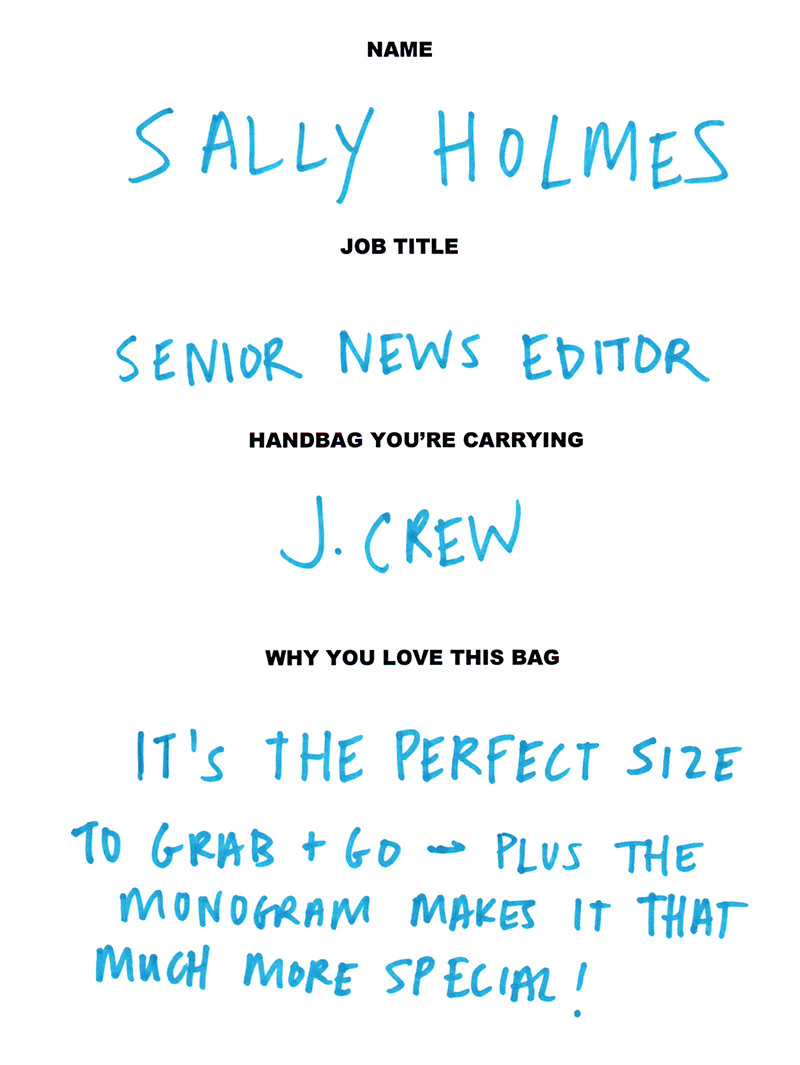 NAME
SALLY HOLMES
JOB TITLE
SENIOR NEWS EDITOR
HANDBAG YOU'RE CARRYING
J. CREW
WHY YOU LOVE THIS BAG
IT'S THE PERFECT SIZE
TO GRAB + GO — PLUS THE
MONOGRAM MAKES IT THAT
MUCH MORE SPECIAL!